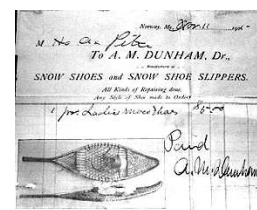 Norway, Me., Nov 11 190
M
To A. M. DUNHAM, Dr.,
SNOW SHOES and SNOW SHOE SLIPPERS.
All Kinds of Repairing done.
Any Style of Shoe made to Order
1 pr. Ladies Snow Shoes $5.00
Paid
A. M. Dunham